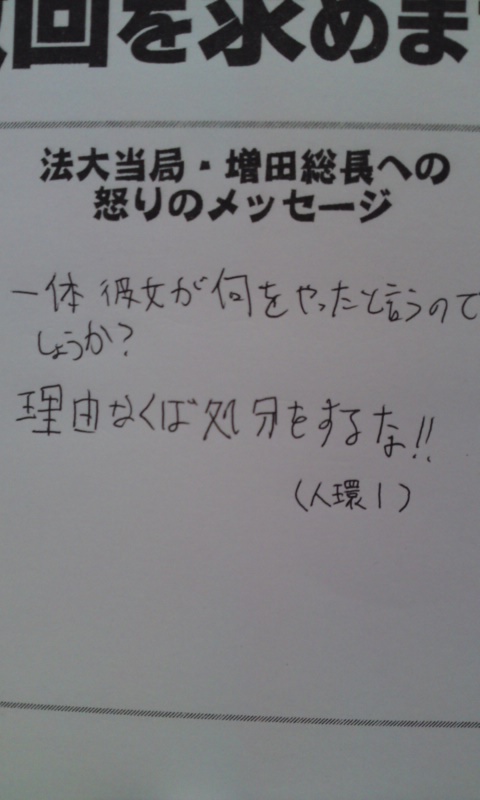 回を求めま
法大当局・増田総長への
怒りのメッセージ
一体彼女が何をやったと言うので
しょうか?
理由なくば処分をするな!!
(人環1)